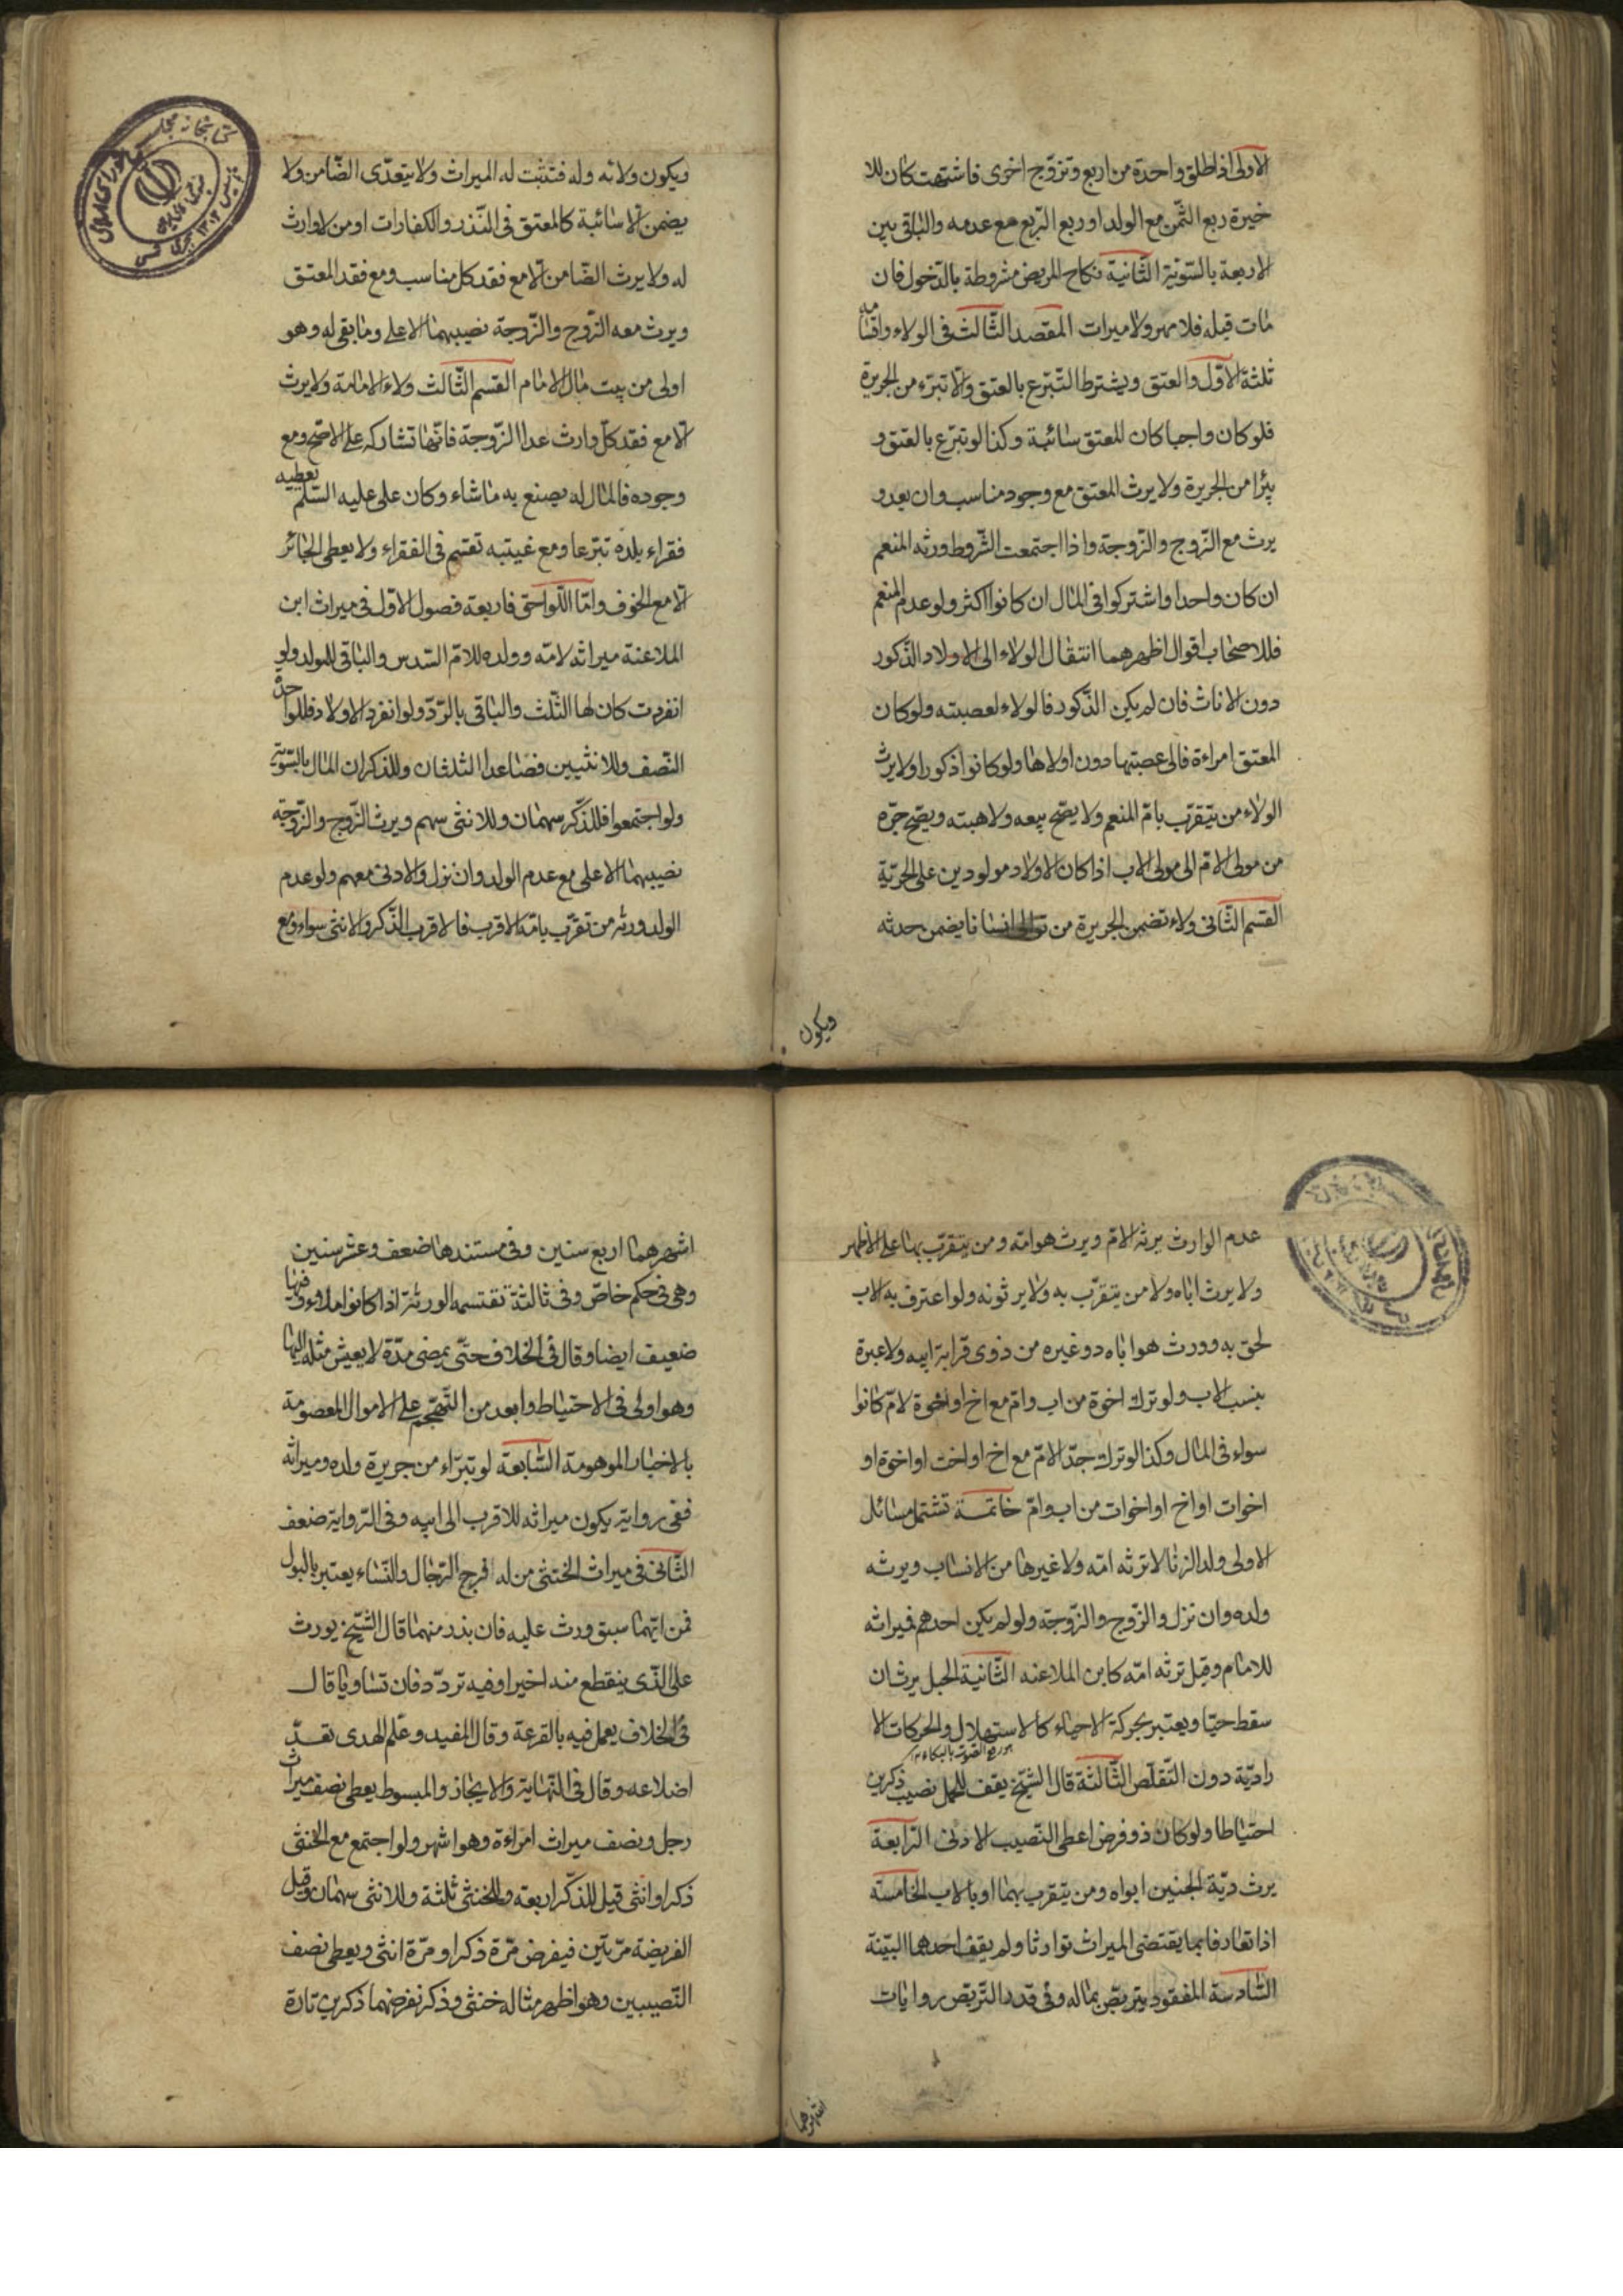 الاولى اذا طلق واحدة من اربع وتزوّج اخرى فاشتبهت كان للا
خيرة ربع الثمن مع الولد او ربع الرّبع مع عدمه والباقى بين
الاربعة بالسّويّة الثّانية نكاح المريض مشروطة بالدّخول فان
مات قبله فلا مهر ولا ميراث المقصد الثّالث فى الولاء واقسامه
ثلثة الاوّل والعتق ويشترط التّبرّع بالعتق والا تبرّء من الجريرة
فلو كان واجبا كان المعتق سائبة وكذا لو تبرّع بالعتق و
تبرّا من الجريرة ولا يرث المعتق مع وجود مناسب وان بعد و
يرث مع الزّوج والزّوجة واذا اجتمعت الشّروط ورثه المنعم
ان كان واحدا واشتركوا فى المال ان كانوا اكثر ولو عدم المنعم
فللاصحاب اقوال اظهرهما انتقال الولاء الى الاولاد الذّكور
دون الاناث فان لم يكن الذّكور فالولاء لعصبته ولو كان
المعتق امراءة فالى عصبتها دون اولادها ولو كانوا ذكورا ولا يرث
الولاء من يتقرّب بامّ المنعم ولا يصّح بيعه ولا هبته ويصّح جرّه
من مولى الامّ الى مولى الاب اذا كان الاولاد مولودين على الحريّة
القسم الثّانى ولاء تضمن الجريرة من توالى انسانا يضمن حدثه
ويكون
ويكون ولائه وله فتثبت له الميراث ولا يتعدّى الضّامن ولا
يضمن الا سائبة كالمعتق فى النّذر والكفارات او من لا وارث
له ولا يرث الضّامن الا مع فقد كل مناسب ومع فقد المعتق
ويرث معه الزّوج والزّوجة نصيبهما الاعلى وما بقى له وهو
اولى من بيت مال الامام القسم الثّالث ولاء الامامة ولا يرث
الا مع فقد كلّ وارث عدا الزّوجة فانّها تشاركه على الاصّح ومع
وجوده فالمال له يصنع به ما شاء وكان على عليه السّلم يعطيه
فقراء بلده تبرّعا ومع غيبته تقسم فى الفقراء ولا يعطى الجائر
الا مع الخوف وامّا اللّواحق فاربعة فصول الاوّل فى ميراث ابن
الملاعنة ميراثه لامّه وولده للامّ السّدس والباقى للولد ولو
انفردت كان لها الثّلث والباقى بالرّدّ ولو انفرد الاولاد فللواحدة
النّصف وللانثيين فصاعدا الثلثان وللذكران المال بالسّويّة
ولو اجتمعوا فللذّكر سهمان وللانثى سهم ويرث الزّوج والزّوجة
نصيبهما الاعلى مع عدم الولد وان نزل والادنى معهم ولو عدم
الولد ورثه من تقرّب بامّه الاقرب فالاقرب الذّكر والانثى سواء ومع
عدم الوارث يرثه الامّ ويرث هو امّه ومن يتقرّب بها على الاظهر
ولا يرث اباه ولا من يتقرّب به ولا يرثونه ولو اعترف به الاب
لحق به وورث هو اباه دو غيره من ذوى قرابة ابيه ولا عبرة
بنسب الاب ولو ترك اخوة من اب وامّ مع اخ او اخوة لامّ كانوا
سواء فى المال وكذا لو ترك جدّ الامّ مع اخ او اخت او اخوة او
اخوات او اخ او اخوات من اب وامّ خاتمة تشتمل مسائل
الاولى ولد الزنا لا ترثه امّه ولا غيرها من الانساب ويرثه
ولده وان نزل والزّوج والزّوجة ولو لم يكن احدهم فميراثه
للامام وقيل ترثه امّه كابن الملاعنه الثّانية الحمل يرث ان
سقط حيّا ويعتبر بحركة الاحياء كالاستهلال والحركات الا
راديّة دون التّقلّص الثّالثة قال الشّيخ يقف للحمل نصيب ذكرين
احتياطا ولو كان ذو فرض اعطى النّصيب الادنى الرّابعة
يرث ديّة الجنين ابواه ومن يتقرب بهما او بالاب الخامسة
اذا تعارفا بما يقتضى الميراث توارثا ولم يقف احدهما البيّنة
السّادسة المفقود يتربّص بماله وفى قدر التّربّص روايات
اشهرهما اربع سنين وفى مستندها ضعف وعشر سنين
وهى فى حكم خاصّ وفى ثالثة تقتسمه الورثة اذا كانوا ملاء وفيها
ضعيف ايضا وقال فى الخلاف حتّى يمضى مدّة لا يعيش مثله اليها
وهو اولى فى الاحتياط وابعد من التّهجّم على الاموال المعصومة
بالاخبار الموهومة السّابعة لو تبرّاء من جريرة ولده وميراثه
ففى رواية يكون ميراثه للاقرب الى ابيه وفى الرّواية ضعف
الثّانى فى ميراث الخنثى من له فرج الرّجال والنّساء يعتبر بالبول
فمن ايّهما سبق ورث عليه فان بدر منهما قال الشّيخ يورث
على الذّى ينقطع منه اخيرا وفيه تردّد فان تساويا قال
فى الخلاف يعمل فيه بالقرعة وقال المفيد وعلم الهدى تعدّ
اضلاعه وقال فى النّهاية والايجاز والمبسوط يعطى نصف ميراث
رجل ونصف ميراث امراءة وهو اشهر ولو اجتمع مع الخنثى
ذكر او انثى قيل للذّكر اربعة وللخنثى ثلثة وللانثى سهمان وقيل
الفريضة مرّتين فيفرض مرّة ذكرا ومرّة انثى ويعطى نصف
النّصيبين وهو اظهر مثاله خنثى وذكر نفرضهما ذكرين تارة